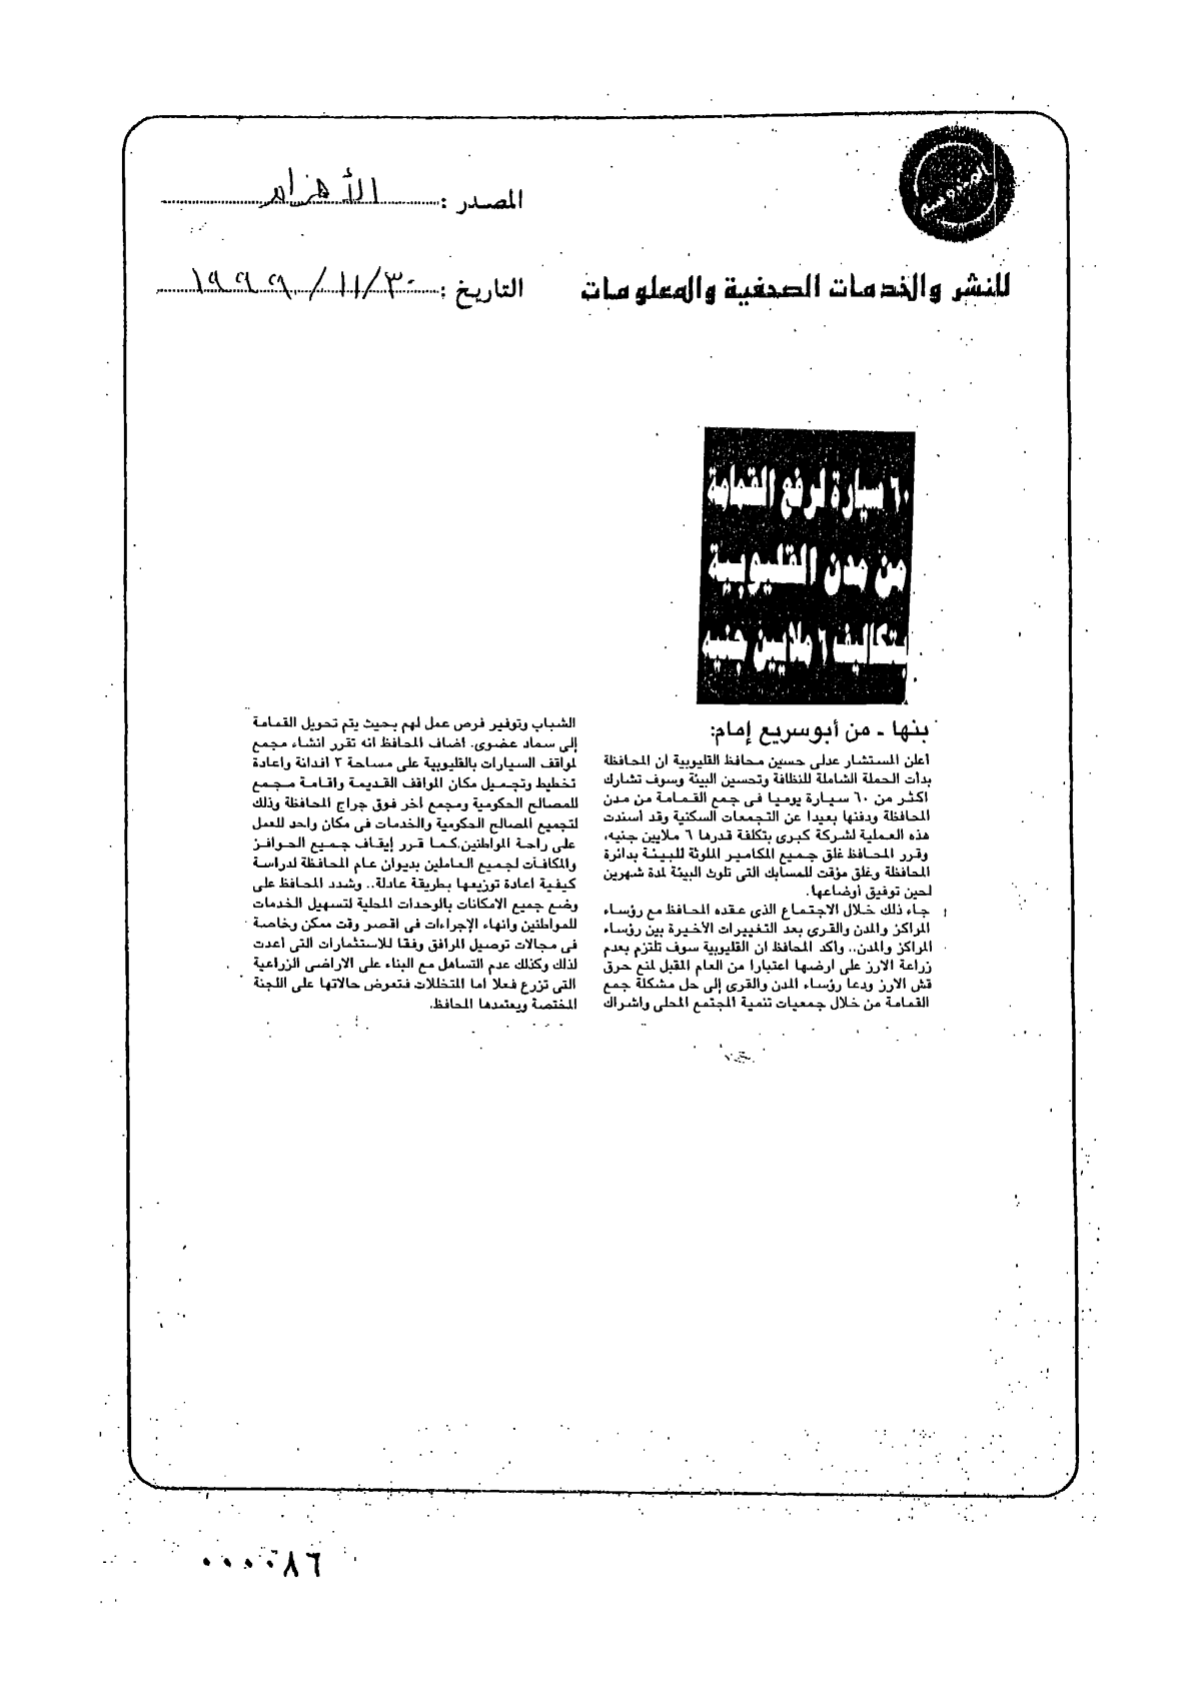 المصدر : الأهرام
للنشر والخدمات الصحفية والمعلومات
التاريخ : ٣٠/١١/١٩٩٩
٦٠ سيارة لرفع القمامة
من مدن القليوبية
بتكاليف ٦ ملايين جنيه
بنها ـ من أبوسريع إمام:
أعلن المستشار عدلى حسين محافظ القليوبية أن المحافظة
بدأت الحملة الشاملة للنظافة وتحسين البيئة وسوف تشارك
اكثر من ٦٠ سيارة يوميا فى جمع القمامة من مدن
المحافظة ودفنها بعيدا عن التجمعات السكنية وقد أسندت
هذه العملية لشركة كبرى بتكلفة قدرها ٦ ملايين جنيه،
وقرر المحافظ غلق جميع المكامير الملوثة للبيئة بدائرة
المحافظة وغلق مؤقت للمسابك التى تلوث البيئة لمدة شهرين
لحين توفيق أوضاعها.
جاء ذلك خلال الاجتماع الذى عقده المحافظ مع رؤساء
المراكز والمدن والقرى بعد التغييرات الأخيرة بين رؤساء
المراكز والمدن.. وأكد المحافظ ان القليوبية سوف تلتزم بعدم
زراعة الارز على ارضها اعتبارا من العام المقبل لمنع حرق
قش الارز ودعا رؤساء المدن والقرى إلى حل مشكلة جمع
القمامة من خلال جمعيات تنمية المجتمع المحلى واشراك
الشباب وتوفير فرص عمل لهم بحيث يتم تحويل القمامة
إلى سماد عضوى. اضاف المحافظ انه تقرر انشاء مجمع
لمواقف السيارات بالقليوبية على مساحة ٣ افدانة واعادة
تخطيط وتجميل مكان المواقف القديمة واقامة مجمع
للمصالح الحكومية ومجمع اخر فوق جراج المحافظة وذلك
لتجميع المصالح الحكومية والخدمات فى مكان واحد للعمل
على راحة المواطنين.كما قرر إيقاف جميع الحوافز
والمكافآت لجميع العاملين بديوان عام المحافظة لدراسة
كيفية اعادة توزيعها بطريقة عادلة.. وشدد المحافظ على
وضع جميع الامكانات بالوحدات المحلية لتسهيل الخدمات
للمواطنين وانهاء الإجراءات فى اقصر وقت ممكن وخاصة
فى مجالات توصيل المرافق وفقا للاستشارات التى أعدت
لذلك وكذلك عدم التساهل مع البناء على الاراضى الزراعية
التى تزرع فعلا اما المتخللات فتعرض حالاتها على اللجنة
المختصة ويعتمدها المحافظ.
٠٠٠٠٨٦